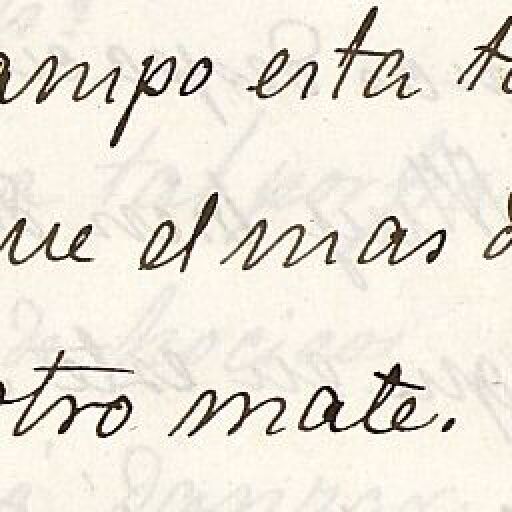 ampo esta t
ue el mas d
otro mate.